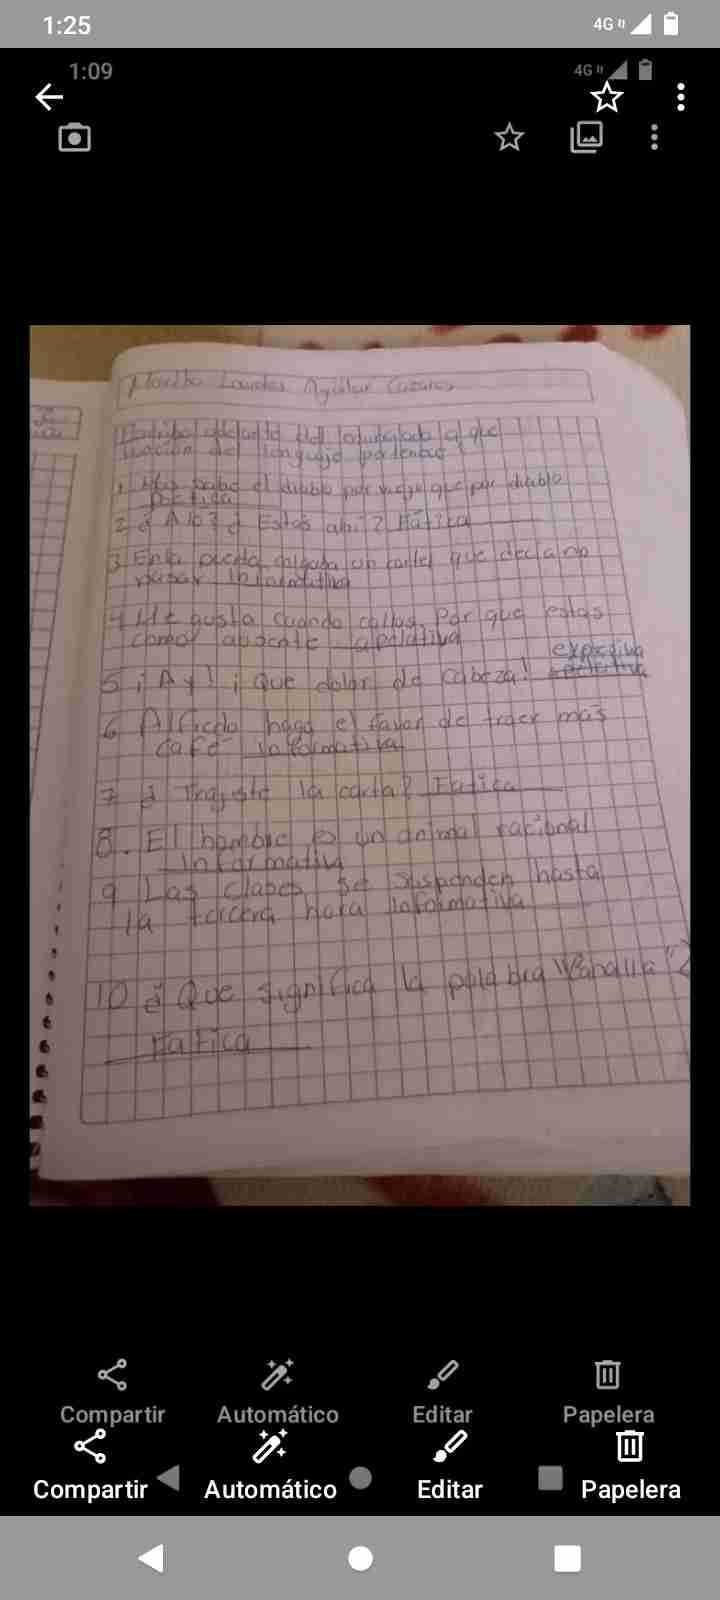 1:25
4G
1:09
4G
Martha Lourdes Aguilar Cazares
adelante del enunciado a que
función del lenguaje pertenece
1. Mas sabe el diablo por viejo que por diablo
poetica
2 ¿Aló? ¿Estas ahi? Fática
3 En la puerta colgaba un cartel que decia no
pasar informativa
4 Me gusta cuando callas, Por que estas
como ausente apelativa
expresiva
5 ¡Ay! ¡Que dolor de cabeza! apelativa
6 Alfredo haga el favor de traer mas
café informativa
7 ¿Trajiste la carta? Fatica
8. El hombre es un animal racional
informativa
9 Las clases se suspenden hasta
la tercera hora informativa
10 ¿Que significa la palabra
Fatica
Compartir Automático Editar Papelera
Compartir Automático Editar Papelera